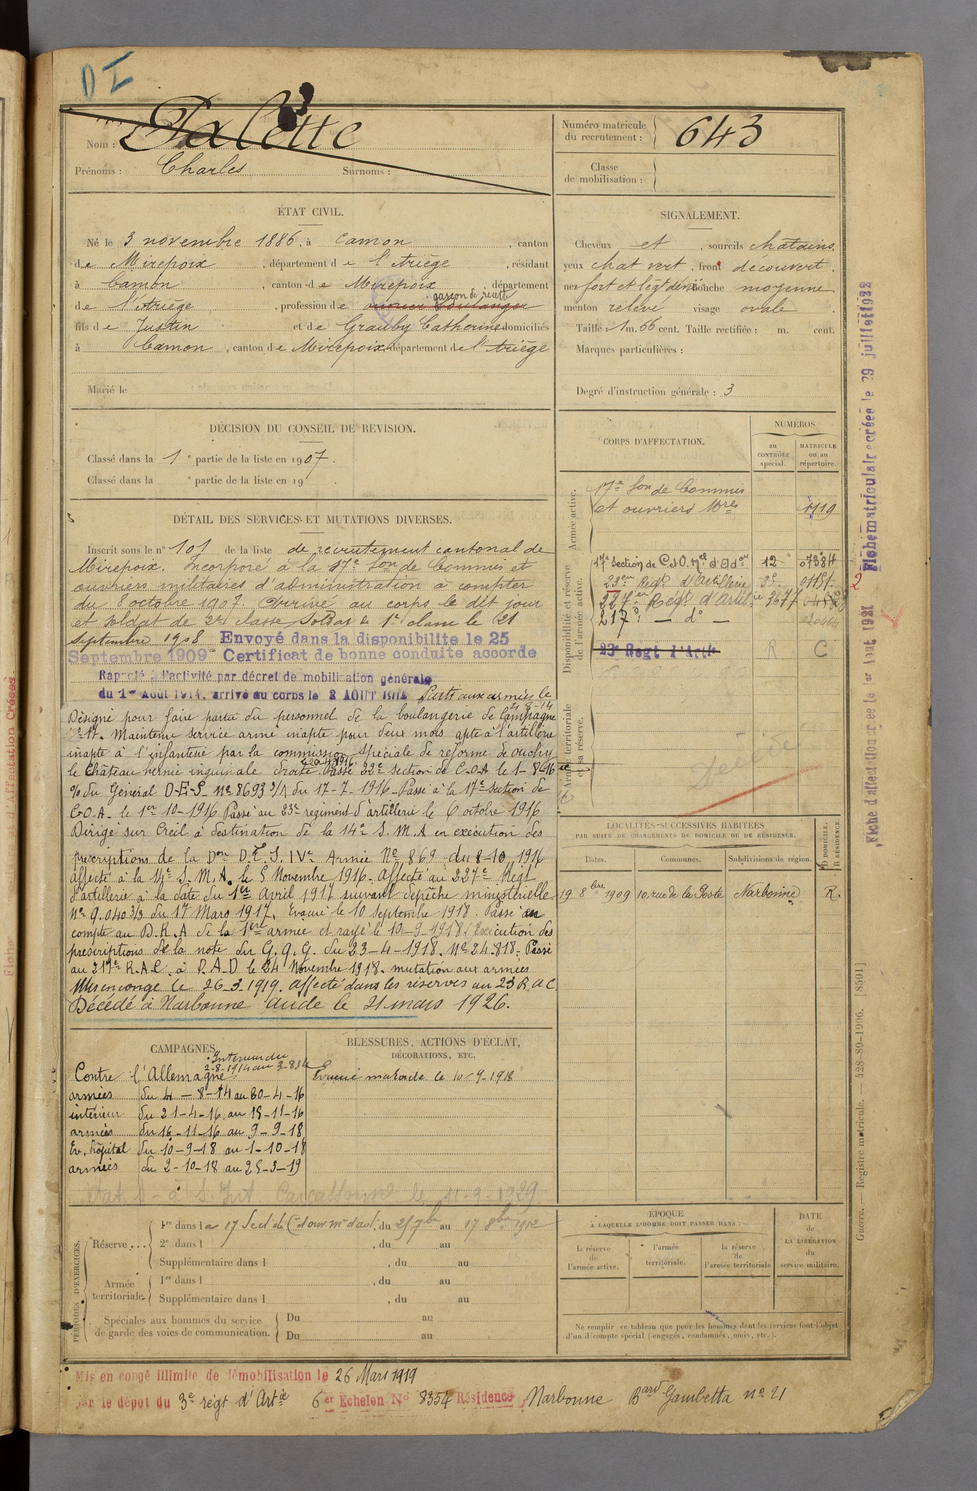 DI
Nom : Palette
Prénoms : Charles Surnoms :
Numéro matricule du recrutement : 643
Classe de mobilisation :
ÉTAT CIVIL.
Né le 3 novembre 1886, à Camon, canton
de Mirepoix, département de l'Ariège, résidant
à Camon, canton de Mirepoix, département
garçon de recette
de l'Ariège, profession de boulanger
fils de Justin et de Grauby Catherine domiciliés
à Camon, canton de Mirepoix, département de l'Ariège
Marié le
SIGNALEMENT.
Cheveux et, sourcils châtains,
yeux chat vert, front découvert,
nez fort et légt dévié bouche moyenne
menton relevé visage ovale
Taille : 1 m. 66 cent. Taille rectifiée : m. cent.
Marques particulières :
Degré d'instruction générale : 3
DÉCISION DU CONSEIL DE REVISION.
Classé dans la 1e partie de la liste en 1907.
Classé dans la e partie de la liste en 19
DÉTAIL DES SERVICES ET MUTATIONS DIVERSES.
Inscrit sous le n° 101 de la liste de recrutement cantonal de
Mirepoix. Incorporé à la 17e Son de Commis et
ouvriers militaires d'administration à compter
du 8 octobre 1907. Arrivé au corps le dit jour
et soldat de 2e classe. Soldat de 1e classe le 21
septembre 1908 Envoyé dans la disponibilite le 25
Septembre 1909 Certificat de bonne conduite accorde
Rappelé à l'activité par décret de mobilisation générale
du 1er Août 1914, arrivé au corps le 3 AOUT 1914 Parti aux armées le
4-8-14
Désigné pour faire partie du personnel de la boulangerie de Campagne
n° 17. Maintenu service armé inapte pour deux mois apte à l'artillerie
inapte à l'infanterie par la commission spéciale de réforme de Oulchy
le Château hernie inguinale droite. Passé 22e section de C.O.A le 1-8-1916
% du Général D.E.S. N° 8693 3/1 du 17-7-1916 Passé à la 17e section de
C.O.A. le 1er 10-1916 Passé au 23e régiment d'artillerie le 6 octobre 1916
Dirigé sur Creil à destination de la 14e S.M.A en exécution des
prescriptions de la Don D.E.S. IVe Armée N° 869 du 8-10-1916
affecté à la 14e S.M.A. le 5 Novembre 1916. Affecté au 227e Régt
d'artillerie à la date du 1er Avril 1917 suivant dépêche ministérielle
N° 9.040 3/3 du 17 Mars 1917. Evacué le 10 Septembre 1918. Passé en
compte au D.R.A de la 1ère armée et rayé le 10-9-1918 (Exécution des
prescriptions de la note du G.Q.G. du 23-4-1918. N° 24.818. Passé
au 217e R.A.C. à P.A.D le 24 Novembre 1918. mutation aux armées
Mis en congé le 26-3-1919. affecté dans les réserves au 23 R.A.C
Décédé à Narbonne Aude le 21 mars 1926.
CORPS D'AFFECTATION.
NUMÉROS
au CONTRÔLE spécial.
MATRICULE ou au répertoire.
Armée active.
17e Son de Commis
et ouvriers Mres 4119
Disponibilité et réserve de l'armée active.
17e Section de C. et O. Mres d'Adon 12
23e Régt d'Artillerie
227e Régt d'Artillerie 3677
217e — do —
23e Regt d'Artie R C
Armée territoriale et sa réserve.
Décédé
LOCALITÉS SUCCESSIVES HABITÉES
PAR SUITE DE CHANGEMENTS DE DOMICILE OU DE RÉSIDENCE.
Dates. Communes. Subdivisions de région. D DOMICILE. R RÉSIDENCE.
19 8bre 1909 10 rue de la Poste Narbonne R.
CAMPAGNES.
Intérieur du 2-8-1914 au 3-8-14
Contre l'Allemagne
armées du 4-8-14 au 20-4-16
intérieur du 21-4-16 au 15-11-16
armées du 16-11-16 au 9-9-18
Ev. hôpital du 10-9-18 au 1-10-18
armées du 2-10-18 au 25-3-19
BLESSURES, ACTIONS D'ÉCLAT,
DÉCORATIONS, ETC.
Evacué malade le 10-9-1918
Carcassonne le 11-9-1929
PÉRIODES D'EXERCICES.
Réserve . . . 1re dans la 17 Sect de Cis et ouv m. d'ad, du 25 7bre au 17 8bre 1912
2e dans l , du au
Supplémentaire dans l , du au
Armée territoriale. 1re dans l , du au
Supplémentaire dans l , du au
Spéciales aux hommes du service Du au
de garde des voies de communication. Du au
ÉPOQUE
À LAQUELLE L'HOMME DOIT PASSER DANS :
la réserve de l'armée active.
l'armée territoriale.
la réserve de l'armée territoriale
DATE de LA LIBÉRATION du service militaire.
Ne remplir ce tableau que pour les hommes dont les services font l'objet
d'un décompte spécial (engagés, condamnés, omis, etc.).
Mis en congé illimité de démobilisation le 26 Mars 1919
par le dépot du 3e régt d'Artie 6er Echelon No 8354 Résidence Narbonne Bard Gambetta n° 21
Guerre. — Registre matricule. — 428-89-1906. [8501]
Fiche d'affectation créée le 1er Aout 1921 Fiche matriculaire créée le 29 juillet 1922
d'Affectation Créée